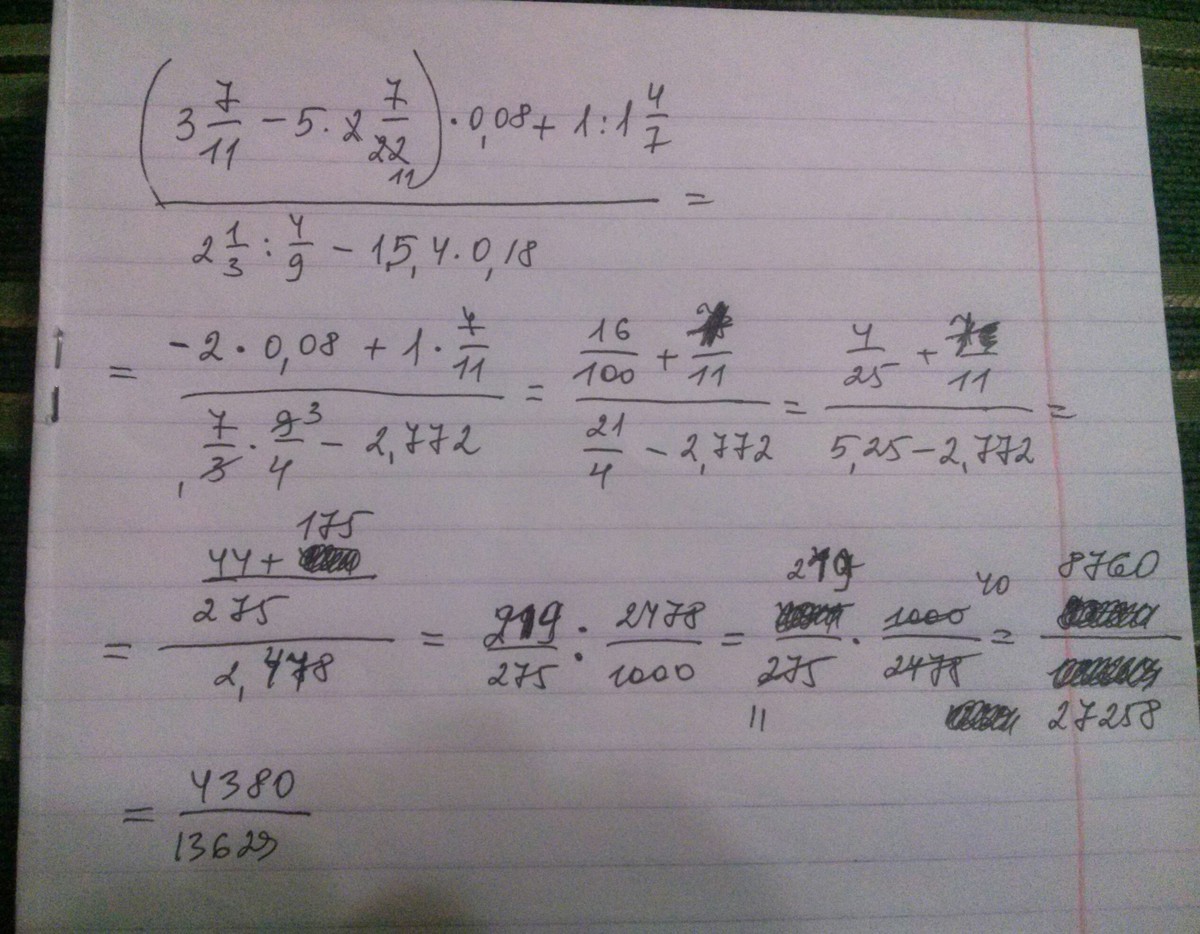 (3 7/11 − 5 · 2 7/22) · 0,08 + 1 : 1 4/7
11
=
2 1/3 : 4/9 − 15,4 · 0,18
= (−2 · 0,08 + 1 · 7/11) / (7/3 · 9/4 − 2,772) = (16/100 + /11) / (21/4 − 2,772) = (4/25 + /11) / (5,25 − 2,772) =
3
1
175
= (44 + / 275) / 2,478 = 219/275 : 2478/1000 = 219/275 · 1000/2478 = 8760/27258
40
11
= 4380/13629